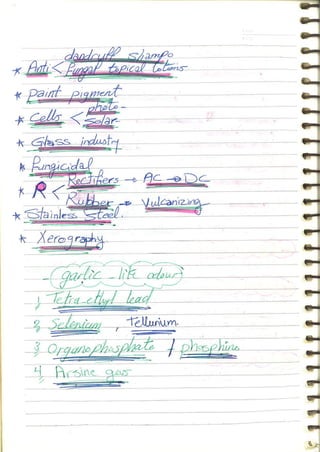 dandruff shampo
* Anti < Fungal topical lotions
* paint pigment
photo-
* Cells < Solar-
* Glass industry
* Fungicidal
Rectifiers → AC → DC
* R <
Rubber → Vulcanizing
* Stainless steel.
* Xerography
- garlic - like odour:
1) Tetra ethyl lead
2) Selenium, Tellurium
3) Organophosphate / phosphine
4) Arsine gas